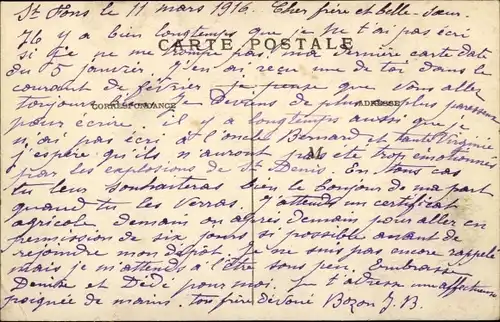 St Fons le 11 mars 1916. Cher frère et belle-sœur.
Il y a bien longtemps que je ne t'ai pas écri
CARTE POSTALE
si je ne me trompe pas, ma dernière carte date
du 5 janvier. J'en ai reçu une de toi dans le
courant de février. je pense que vous allez
toujours je deviens de plus en plus paresseux
CORRESPONDANCE
ADRESSE
pour écrire. il y a longtemps aussi que je
n'ai pas écri à l'oncle Bernard et tante Virginie
j'espère qu'ils n'auront pas été trop émotionnés
M
par les explosions de St Denis. En tous cas
tu leur souhaiteras bien le bonjour de ma part
quand tu les verras. J'attends un certificat
agricole demain ou après demain pour aller en
permission de six jours si possible avant de
rejoindre mon dépôt. Je ne suis pas encore rappelé
mais je m'attends à l'être sous peu. Embrasse
Denise et Dédé pour moi. Je t'adresse une affectueuse
poignée de mains. ton frère dévoué Bozon J. B.